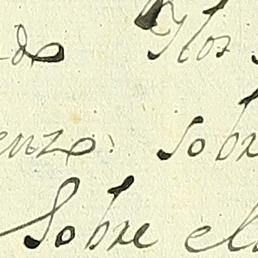 do Nos
enzo: sobr
Sobre el